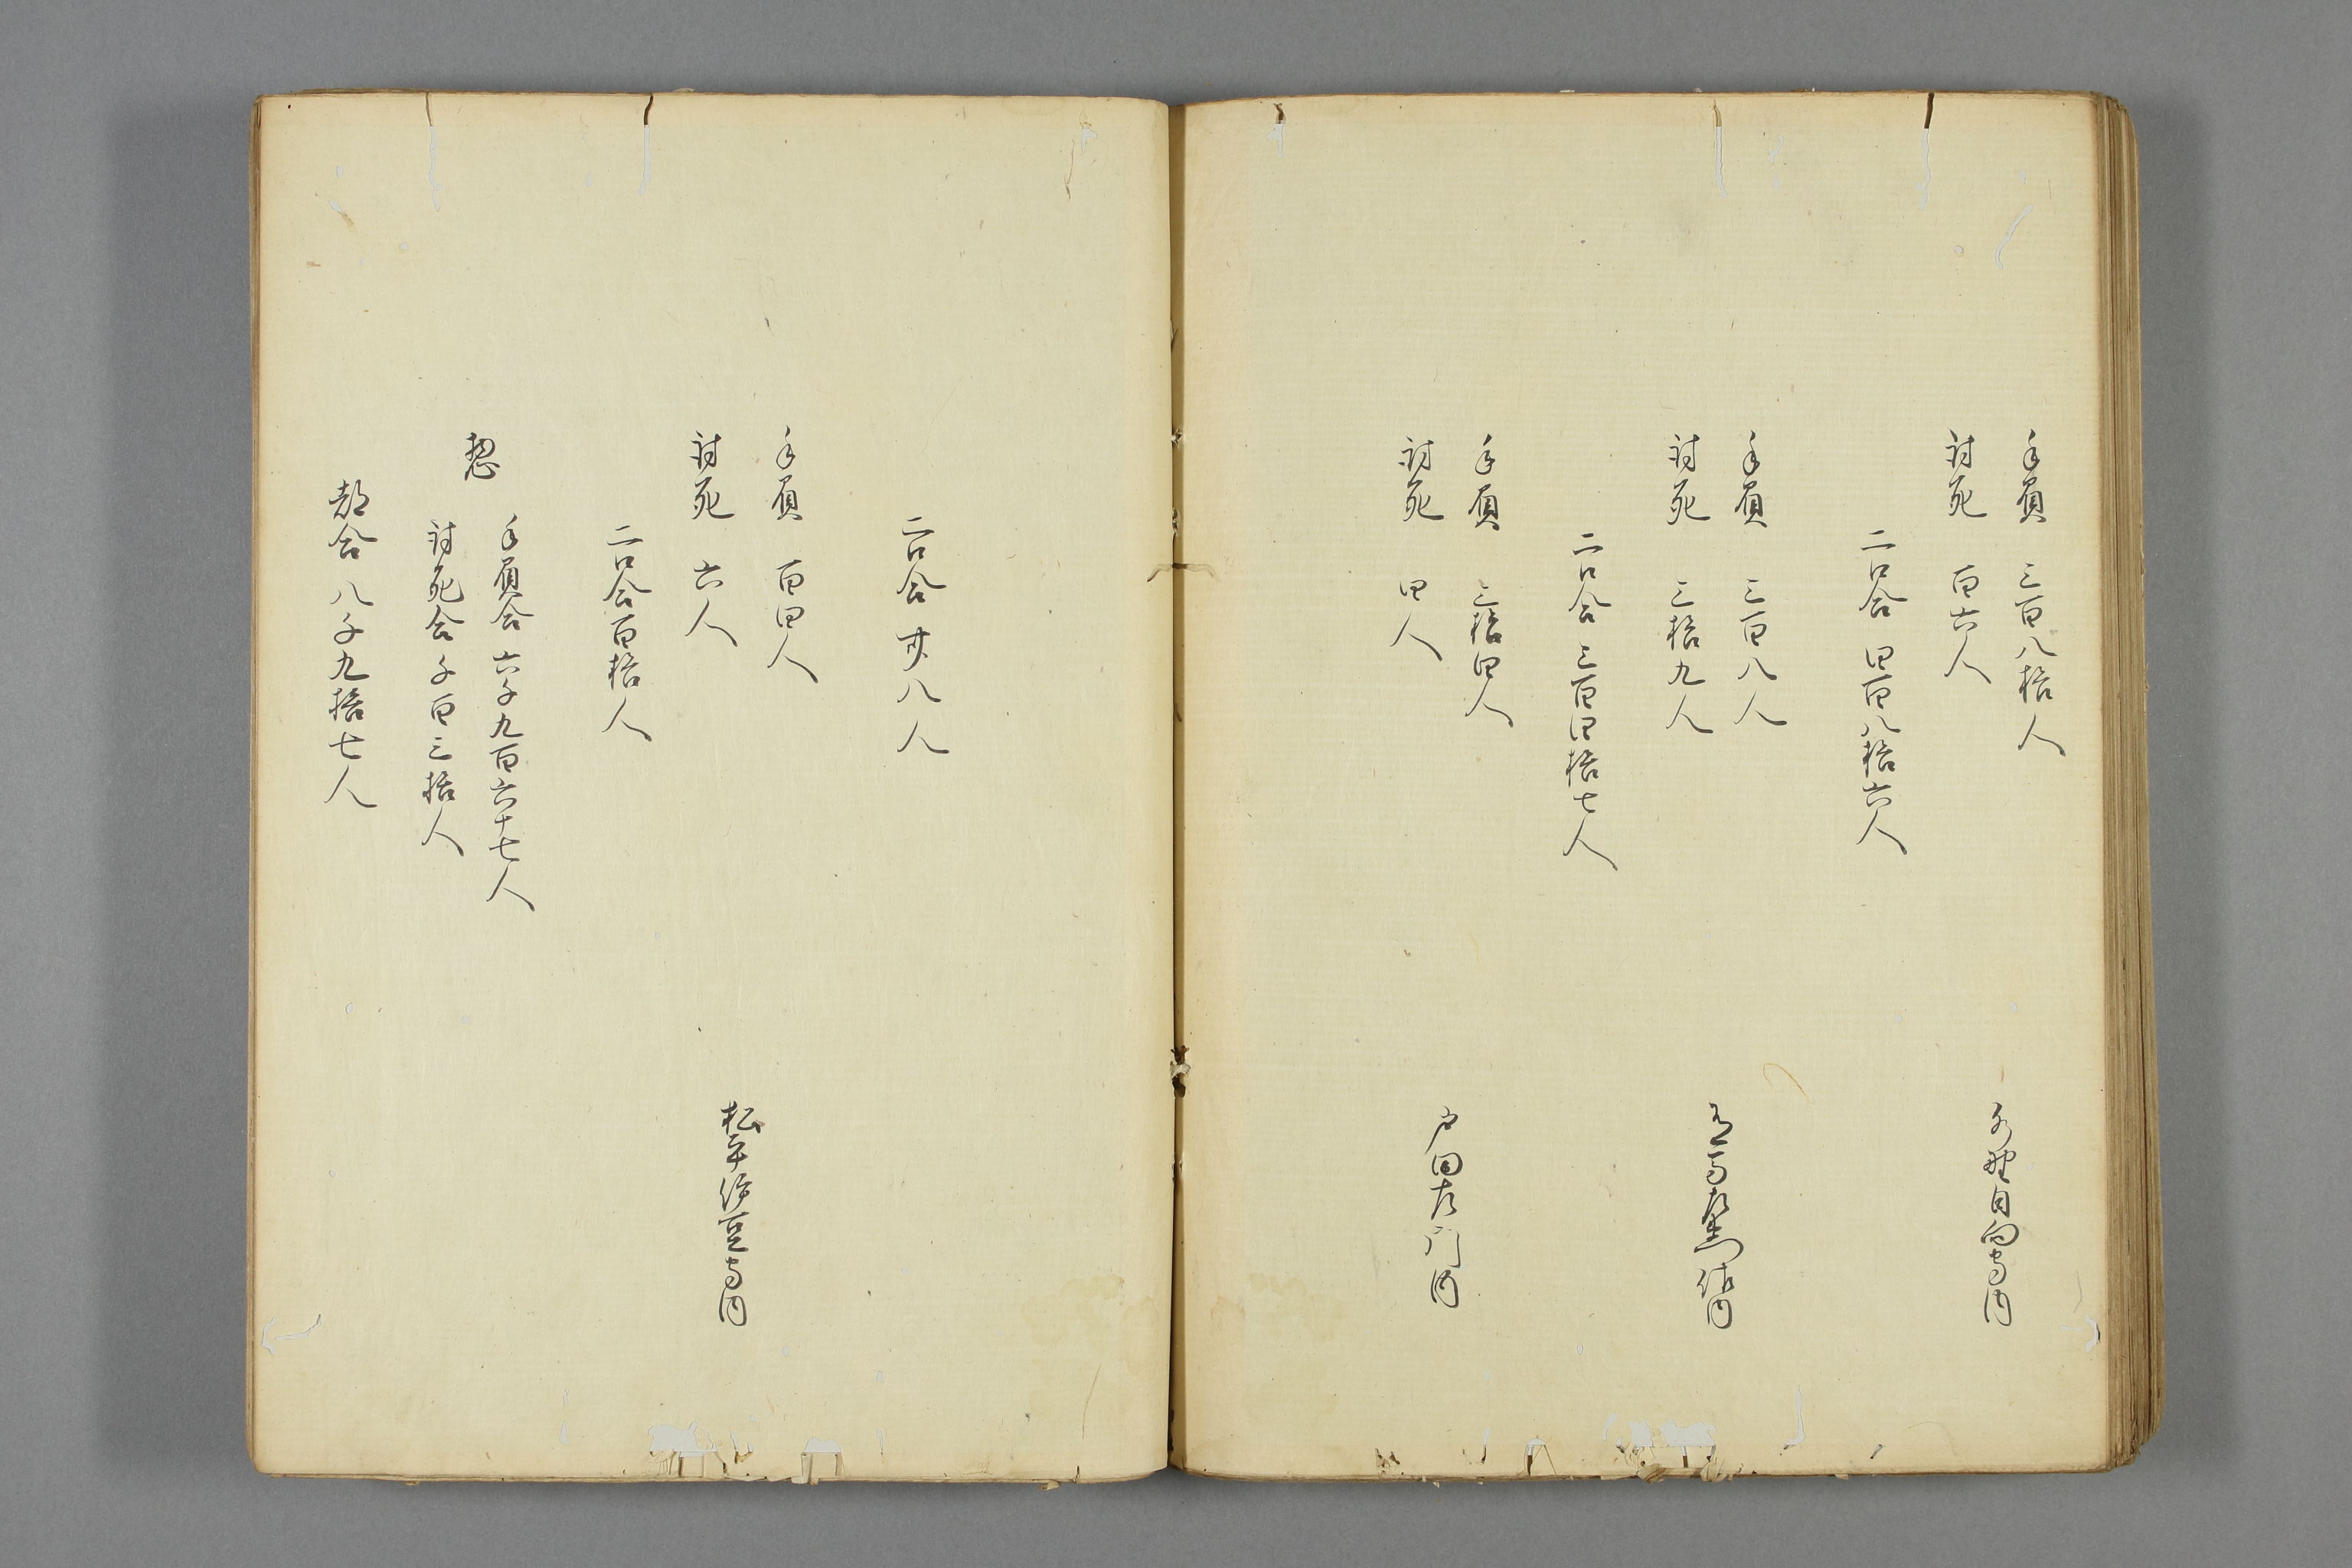 手負　三百八拾人
討死　百六人
水野日向守内
二口合　四百八拾六人
手負　三百八人
討死　三拾九人
有馬左衛門佐内
二口合　三百四拾七人
手負　三拾四人
討死　四人
戸田左門内
二口合　卅八人
手負　百四人
討死　六人
松平伊豆守内
二口合百拾人
惣
手負合　六千九百六十七人
討死合　千百三拾人
都合　八千九拾七人